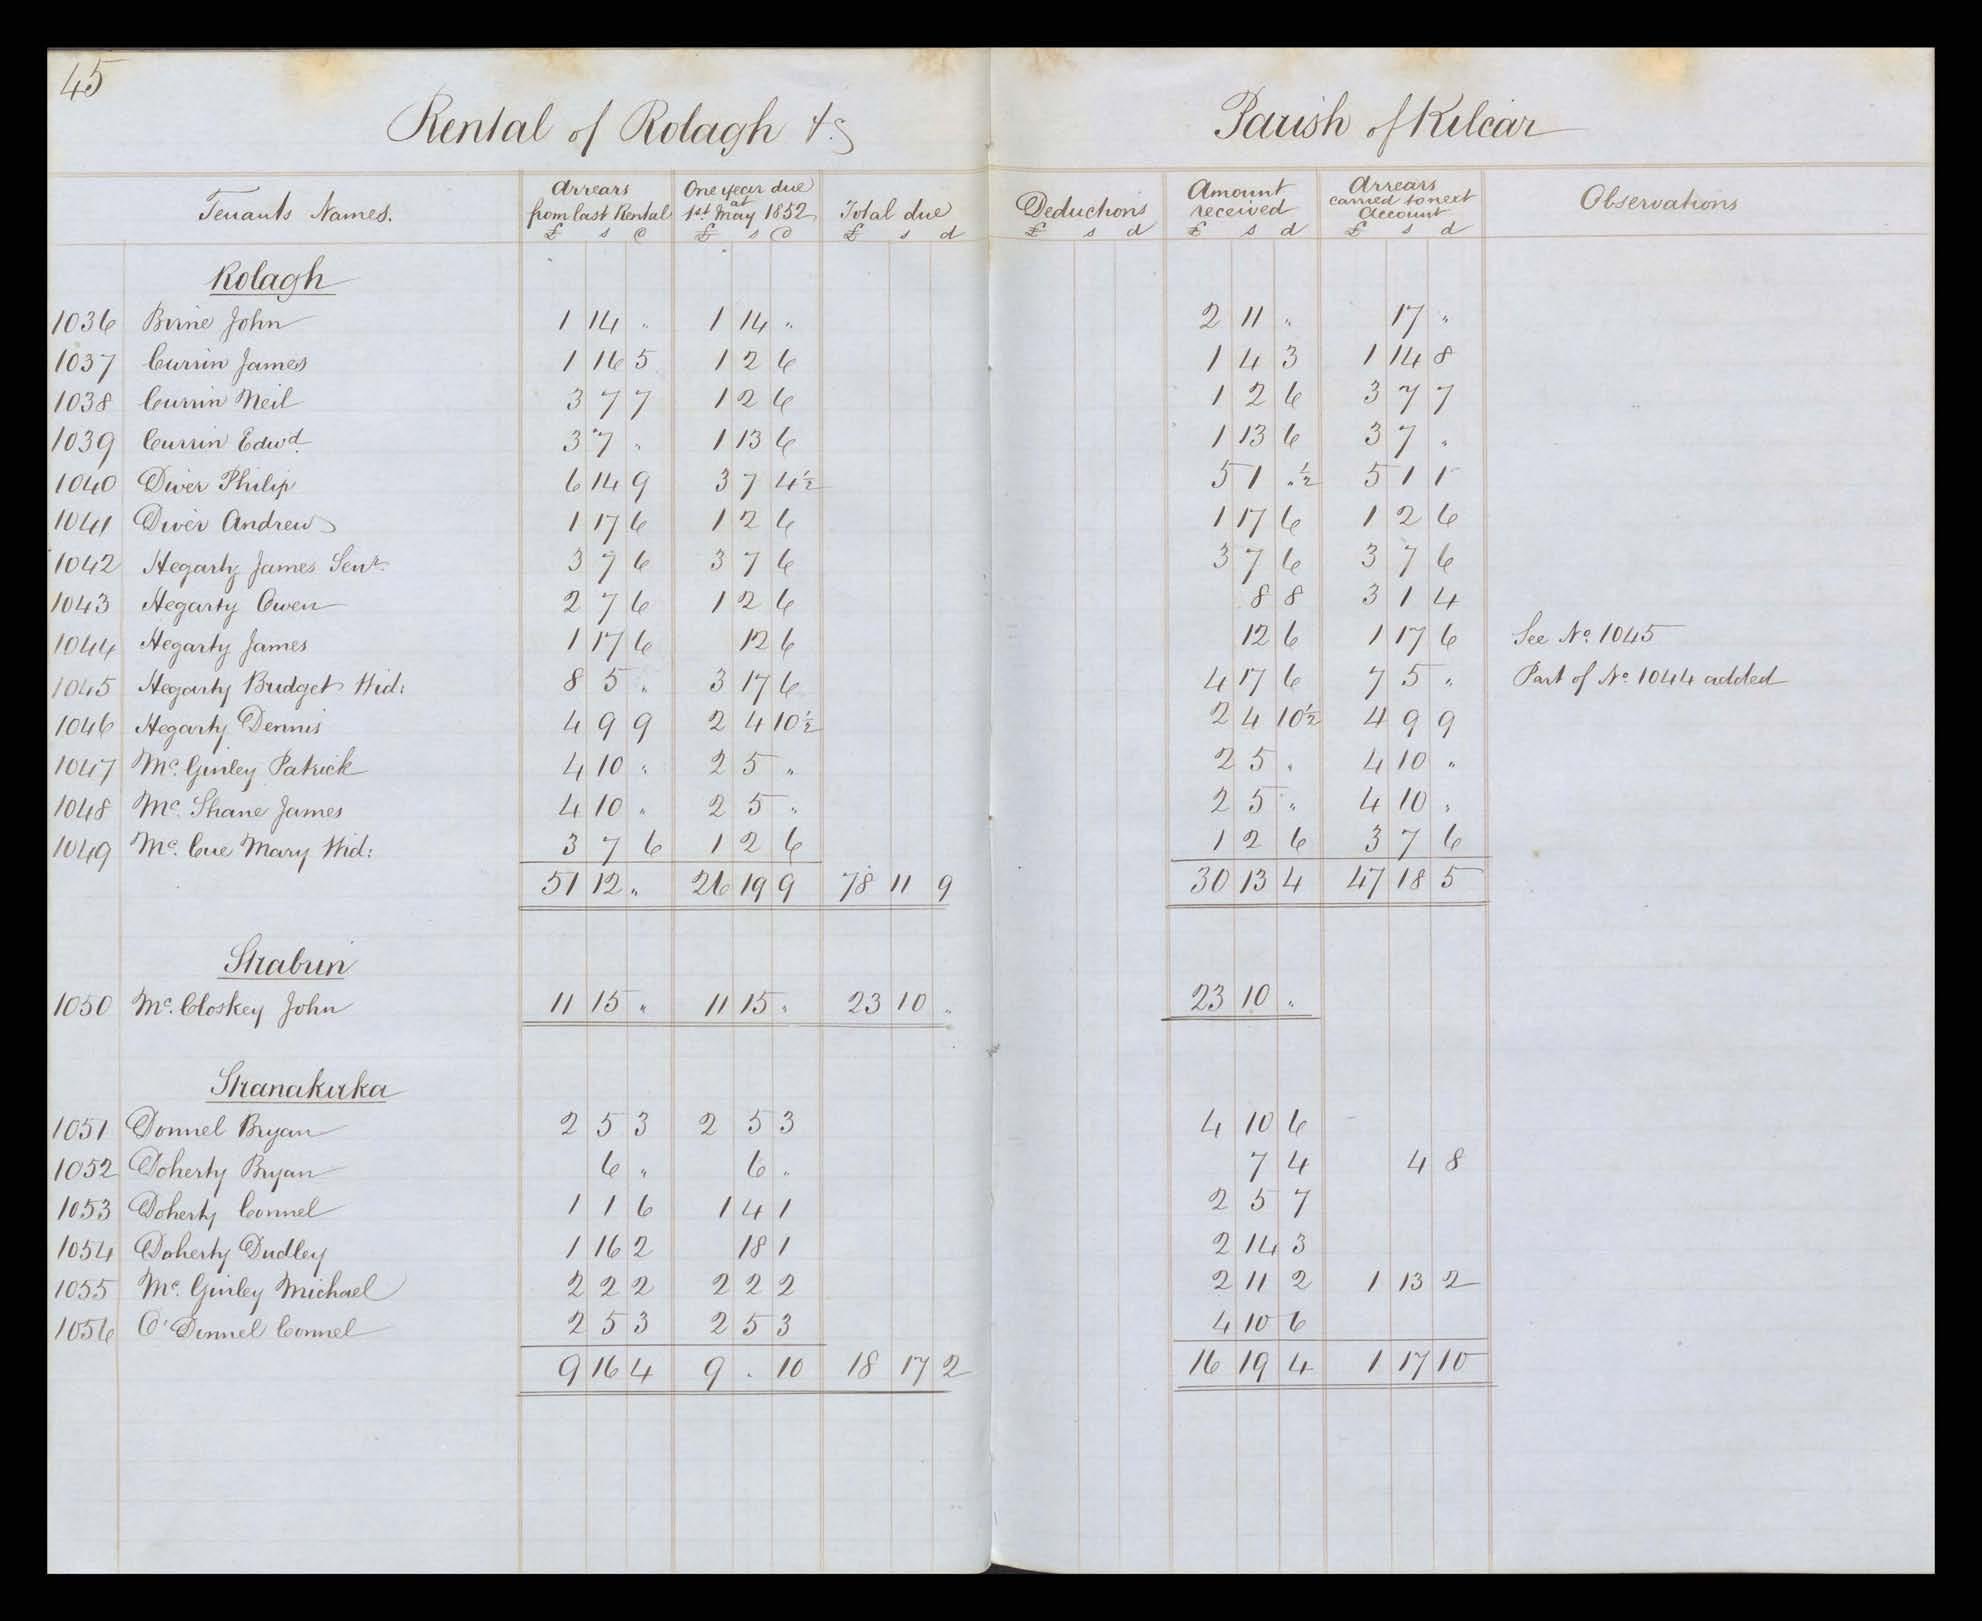 45
Rental of Rolagh &c Parish of Kilcar
Tenants Names. Arrears from last Rental One year due at 1st May 1852 Total due Deductions Amount received Arrears carried to next Account Observations
£ s d £ s d £ s d £ s d £ s d £ s d
Rolagh
1036 Birne John 1 14 " 1 14 " 2 11 " 17 "
1037 Currin James 1 16 5 1 2 6 1 4 3 1 14 8
1038 Currin Neil 3 7 7 1 2 6 1 2 6 3 7 7
1039 Currin Edwd. 3 7 " 1 13 6 1 13 6 3 7 "
1040 Diver Philip 6 14 9 3 7 4½ 5 1 "½ 5 1 1
1041 Diver Andrew 1 17 6 1 2 6 1 17 6 1 2 6
1042 Hegarty James Senr. 3 7 6 3 7 6 3 7 6 3 7 6
1043 Hegarty Owen 2 7 6 1 2 6 8 8 3 1 4
1044 Hegarty James 1 17 6 12 6 12 6 1 17 6 See No. 1045
1045 Hegarty Bridget Wid: 8 5 " 3 17 6 4 17 6 7 5 " Part of No. 1044 added
1046 Hegarty Dennis 4 9 9 2 4 10½ 2 4 10½ 4 9 9
1047 Mc. Ginley Patrick 4 10 " 2 5 " 2 5 " 4 10 "
1048 Mc. Shane James 4 10 " 2 5 " 2 5 " 4 10 "
1049 Mc. Cue Mary Wid: 3 7 6 1 2 6 1 2 6 3 7 6
51 12 " 26 19 9 78 11 9 30 13 4 47 18 5
Strabrin
1050 Mc. Closkey John 11 15 " 11 15 " 23 10 " 23 10 "
Stranakirka
1051 Donnel Bryan 2 5 3 2 5 3 4 10 6
1052 Doherty Bryan 6 " 6 " 7 4 4 8
1053 Doherty Connel 1 1 6 1 4 1 2 5 7
1054 Doherty Dudley 1 16 2 18 1 2 14 3
1055 Mc. Ginley Michael 2 2 2 2 2 2 2 11 2 1 13 2
1056 O'Donnel Connel 2 5 3 2 5 3 4 10 6
9 16 4 9 " 10 18 17 2 16 19 4 1 17 10